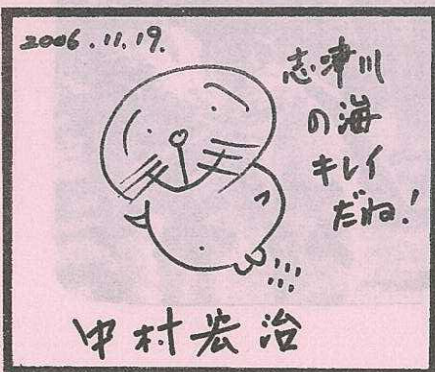 2006.11.19.
志津川
の海
キレイ
だね!
中村宏治